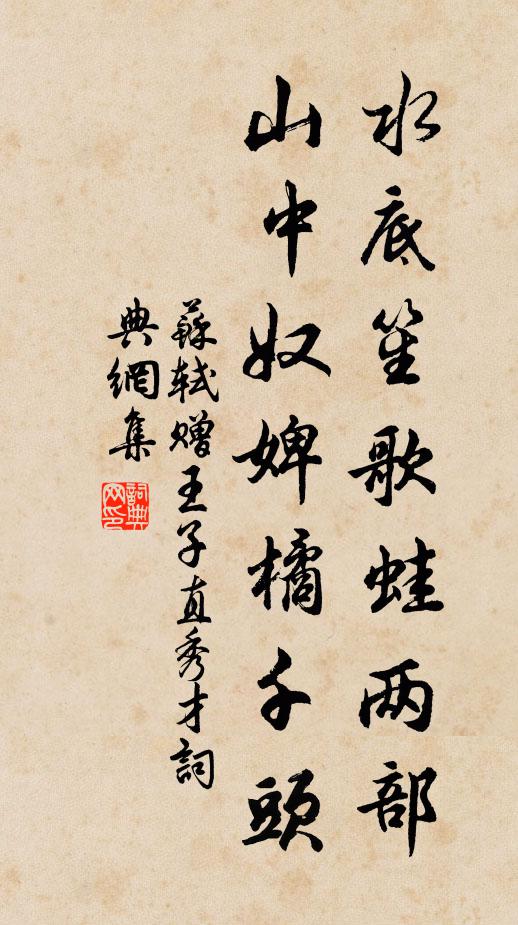 水底笙歌蛙两部
山中奴婢橘千頭
蘇軾赠王子直秀才詞
典網集
詞典
网印